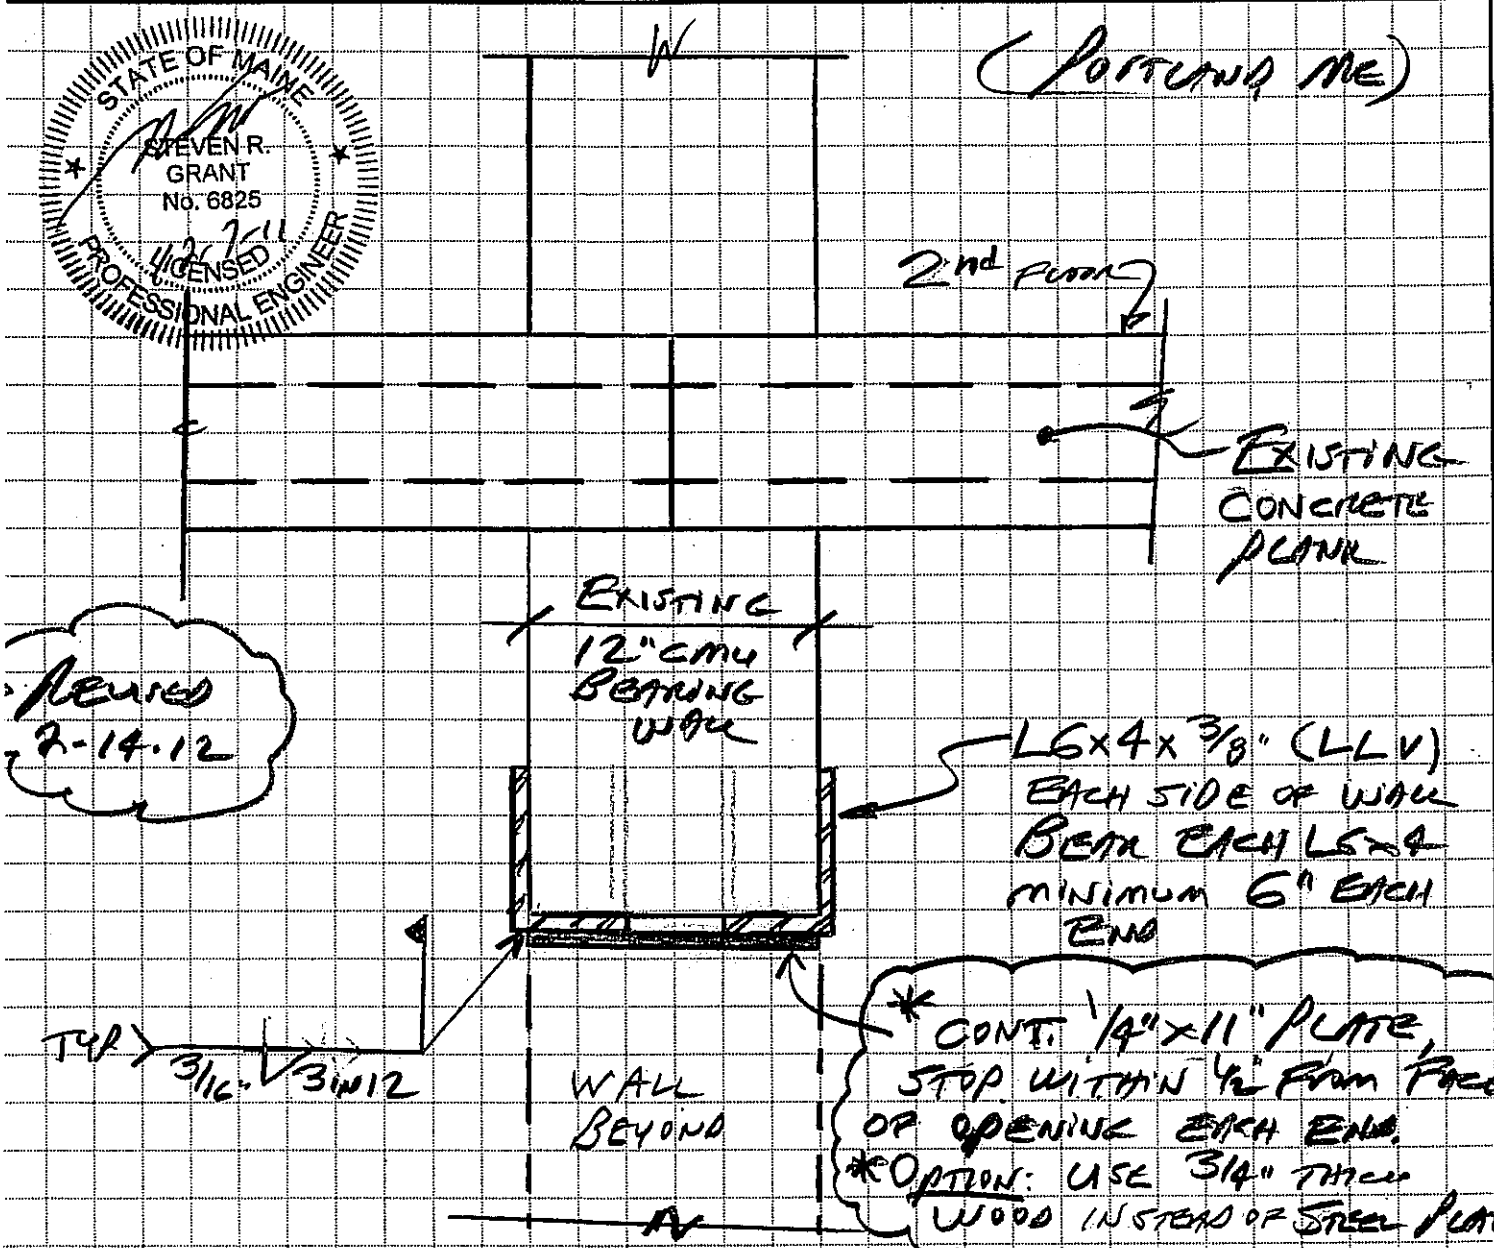 (PORTLAND, ME)
STATE OF MAINE
STEVEN R.
GRANT
No. 6825
LICENSED
PROFESSIONAL ENGINEER
2nd FLOOR
EXISTING
CONCRETE
PLANK
EXISTING
12" CMU
BEARING
WALL
REVISED
2-14-12
L6x4x3/8" (LLV)
EACH SIDE OF WALL
BEAR EACH L6x4
MINIMUM 6" EACH
END
TYP 3/16" 3 IN 12
WALL
BEYOND
* CONT. 1/4"x11" PLATE,
STOP WITHIN 1/2" FROM FACE
OF OPENING EACH END.
*OPTION: USE 3/4" THICK
WOOD INSTEAD OF STEEL PLAT